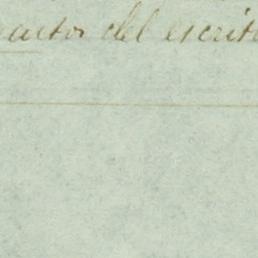 autor del escrit